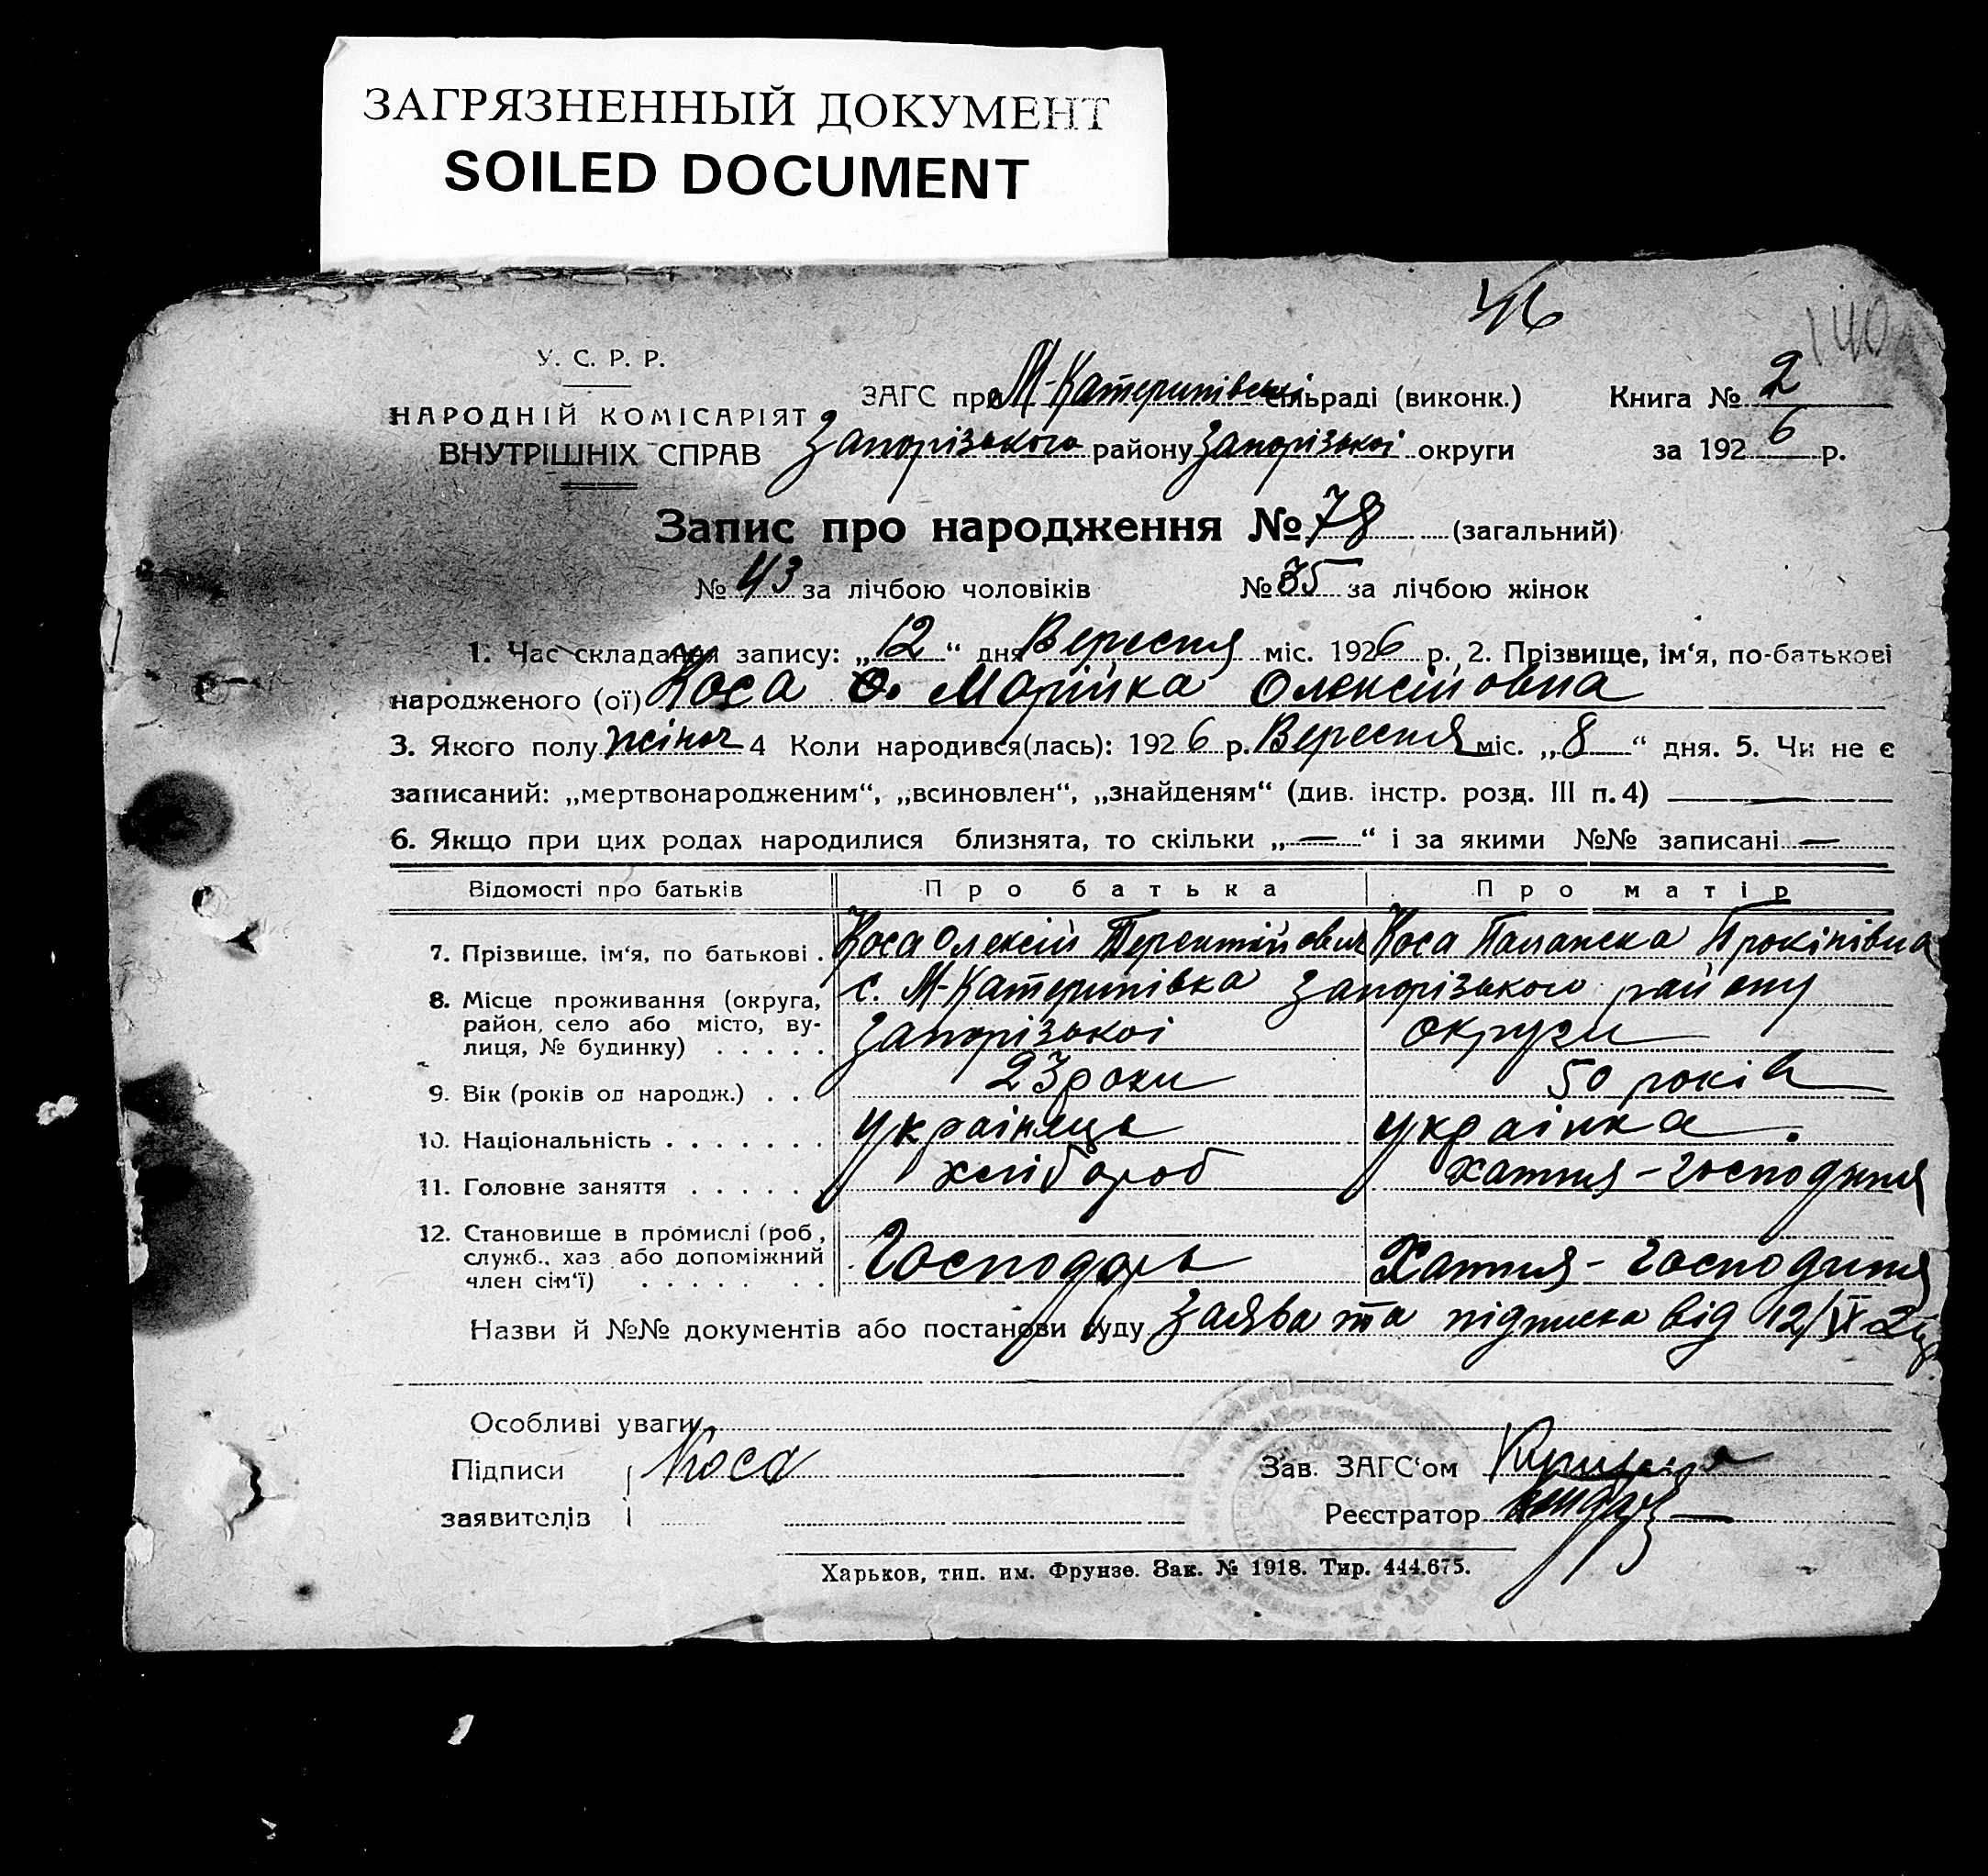 ЗАГРЯЗНЕННЫЙ ДОКУМЕНТ
SOILED DOCUMENT
46
140
У. С. Р. Р.
НАРОДНІЙ КОМІСАРІЯТ
ВНУТРІШНІХ СПРАВ
ЗАГС при М-Катеринівські сільраді (виконк.)
Запорізького району Запорізької округи
Книга № 2
за 1926 р.
Запис про народження № 78 (загальний)
№ 43 за лічбою чоловіків № 35 за лічбою жінок
1. Час складання запису: „12“ дня Вересня міс. 1926 р. 2. Прізвище, ім‘я, по-батькові
народженого (ої) Коса О. Марійка Олексійовна
3. Якого полу жіноч 4 Коли народився(лась): 1926 р. Вересня міс. „8“ дня. 5. Чи не є
записаний: „мертвонародженим“, „всиновлен“, „знайденям“ (див. інстр. розд. III п. 4) —
6. Якщо при цих родах народилися близнята, то скільки „—“ і за якими №№ записані —
Відомості про батьків Про батька Про матір
7. Прізвище, ім‘я, по батькові . Коса Олексій Терентійович Коса Паланска Прокіпівна
8. Місце проживання (округа, с. М-Катеринівка Запорізького району
район, село або місто, ву-
лиця, № будинку) . . . . . Запорізької округи
9. Вік (років од народж.) . . . 23 роки 50 років
10. Національність . . . . . . . Українець Українка.
11. Головне заняття . . . . . . хлібороб хатня-господиня
12. Становище в промислі (роб.,
служб., хаз або допоміжний Господарь Хатня-господиня
член сім‘ї) . . . . . . .
Назви й №№ документів або постанови суду Заява та підписка від 12/
Особливі уваги
Підписи Коса Зав. ЗАГС‘ом
заявителів Реєстратор
Харьков, тип. им. Фрунзе. Зак. № 1918. Тир. 444.675.